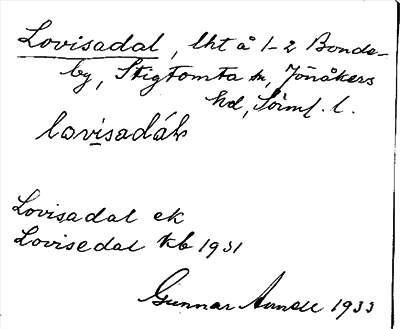 Lovisadal, lht å 1-2 Bonde-
by, Stigtomta sn, Jönåkers
hd, Södml. l.
lovisadáł
Lovisadal ek
Lovisedal kb 1931
Gunnar 1933